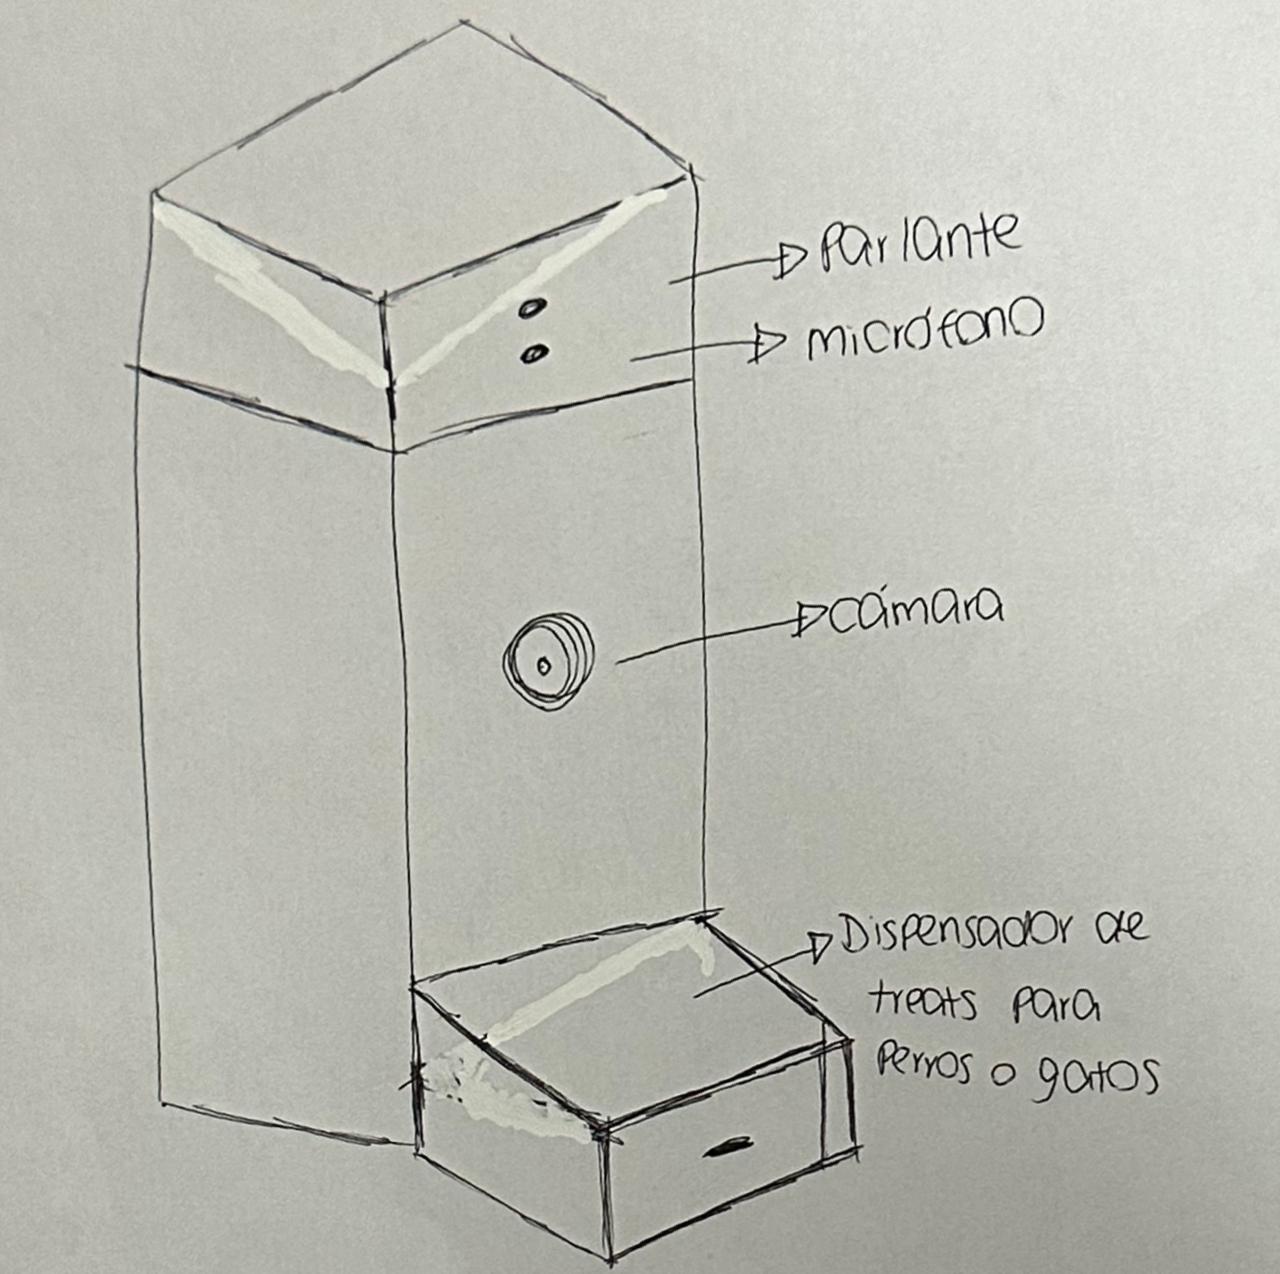 Parlante
micrófono
cámara
Dispensador de
treats para
Perros o gatos